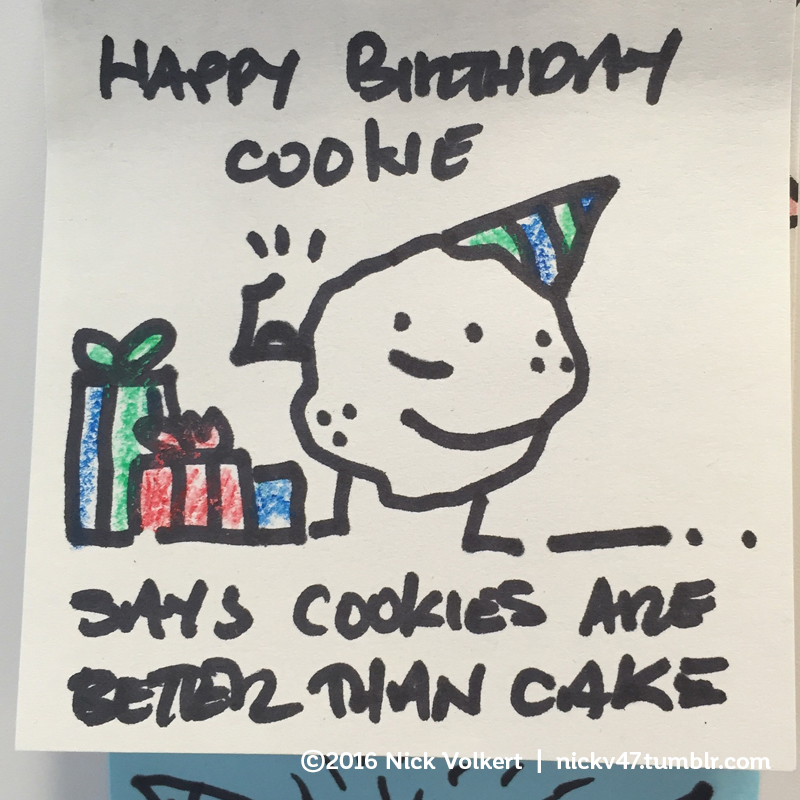 HAPPY BIRTHDAY
COOKIE
SAYS COOKIES ARE
BETER THAN CAKE
©2016 Nick Volkert | nickv47.tumblr.com